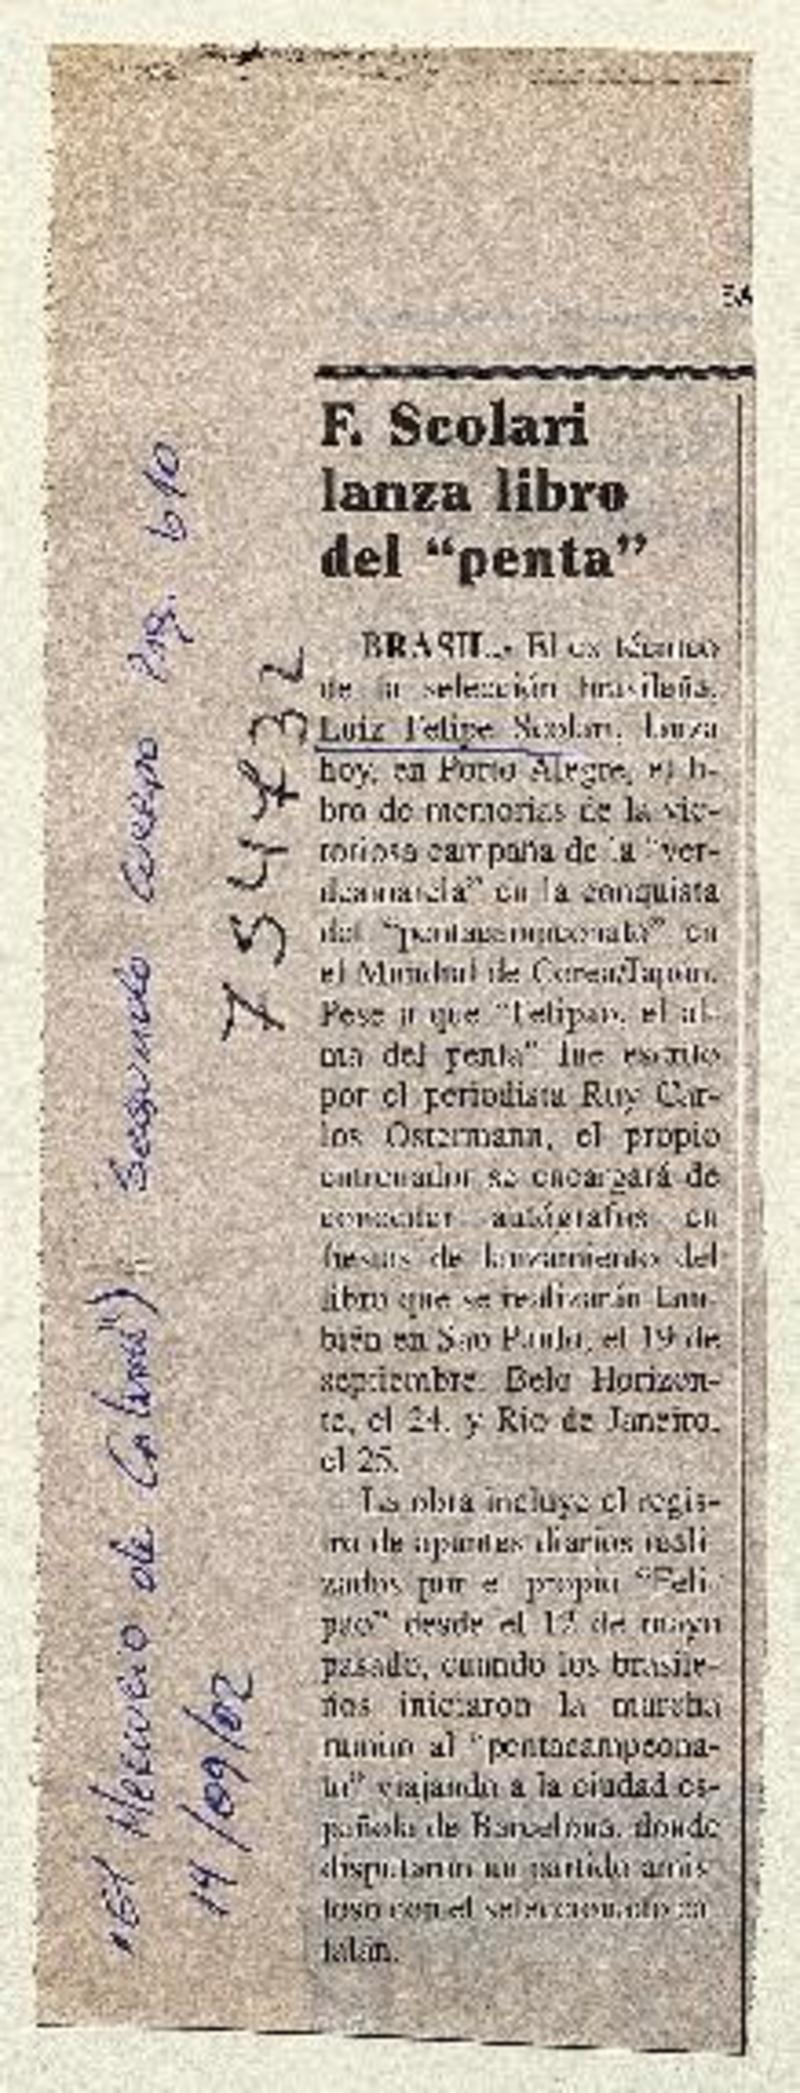 F. Scolari
lanza libro
del “penta”
BRASIL.- El ex técnico
de la selección brasileña,
Luiz Felipe Scolari, lanza
hoy, en Porto Alegre, el li-
bro de memorias de la vic-
toriosa campaña de la “ver-
deamarela” en la conquista
del “pentacampeonato” en
el Mundial de Corea/Japón.
Pese a que “Felipao, el al-
ma del penta” fue escrito
por el periodista Ruy Car-
los Ostermann, el propio
entrenador se encargará de
conceder autógrafos en
fiestas de lanzamiento del
libro que se realizarán tam-
bién en Sao Paulo, el 19 de
septiembre, Belo Horizon-
te, el 24, y Río de Janeiro,
el 25.
La obra incluye el regis-
tro de apuntes diarios reali-
zados por el propio “Feli-
pao” desde el 12 de mayo
pasado, cuando los brasile-
ños iniciaron la marcha
rumbo al “pentacampeona-
to” viajando a la ciudad es-
pañola de Barcelona, donde
disputaron un partido amis-
toso con el seleccionado ca-
talán.
"El Mercurio de Calama") Segundo Cuerpo Pág. b10
14/09/02
754732